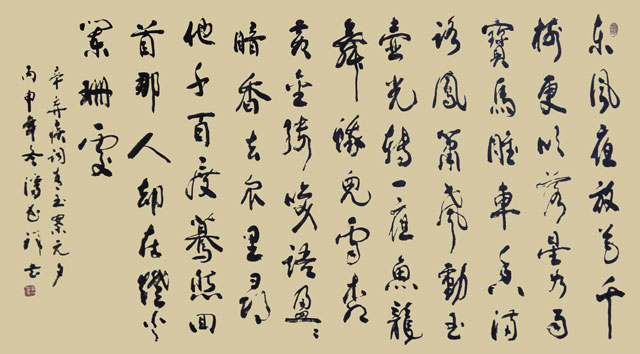 东風夜放花千
樹更吹落星如雨
寶馬雕車香满
路鳳簫聲動玉
壺光轉一夜魚龍
舞蛾兒雪柳
黄金縷笑语盈〻
暗香去众里尋
他千百度驀然回
首那人却在燈火
闌珊處
辛弃疾词青玉案元夕
丙申年冬